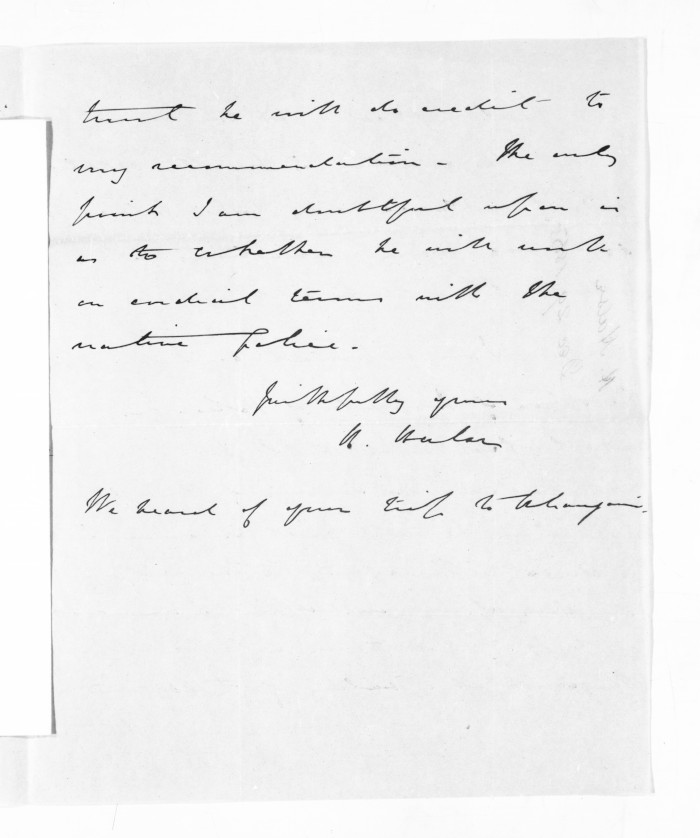 trust he will do credit to
my recommendation - The only
point I am doubtful upon is
as to whether he will work
on cordial terms with the
native Police.
Faithfully yours
We heard of your trip to